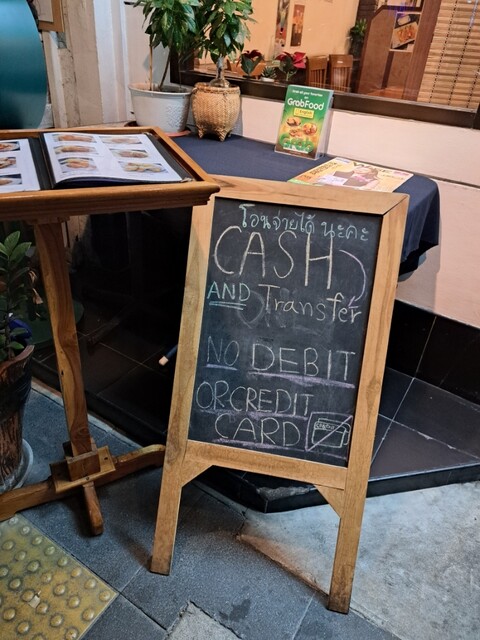 GrabFood
โอนจ่ายได้ นะคะ
CASH
AND Transfer
NO DEBIT
OR CREDIT
CARD